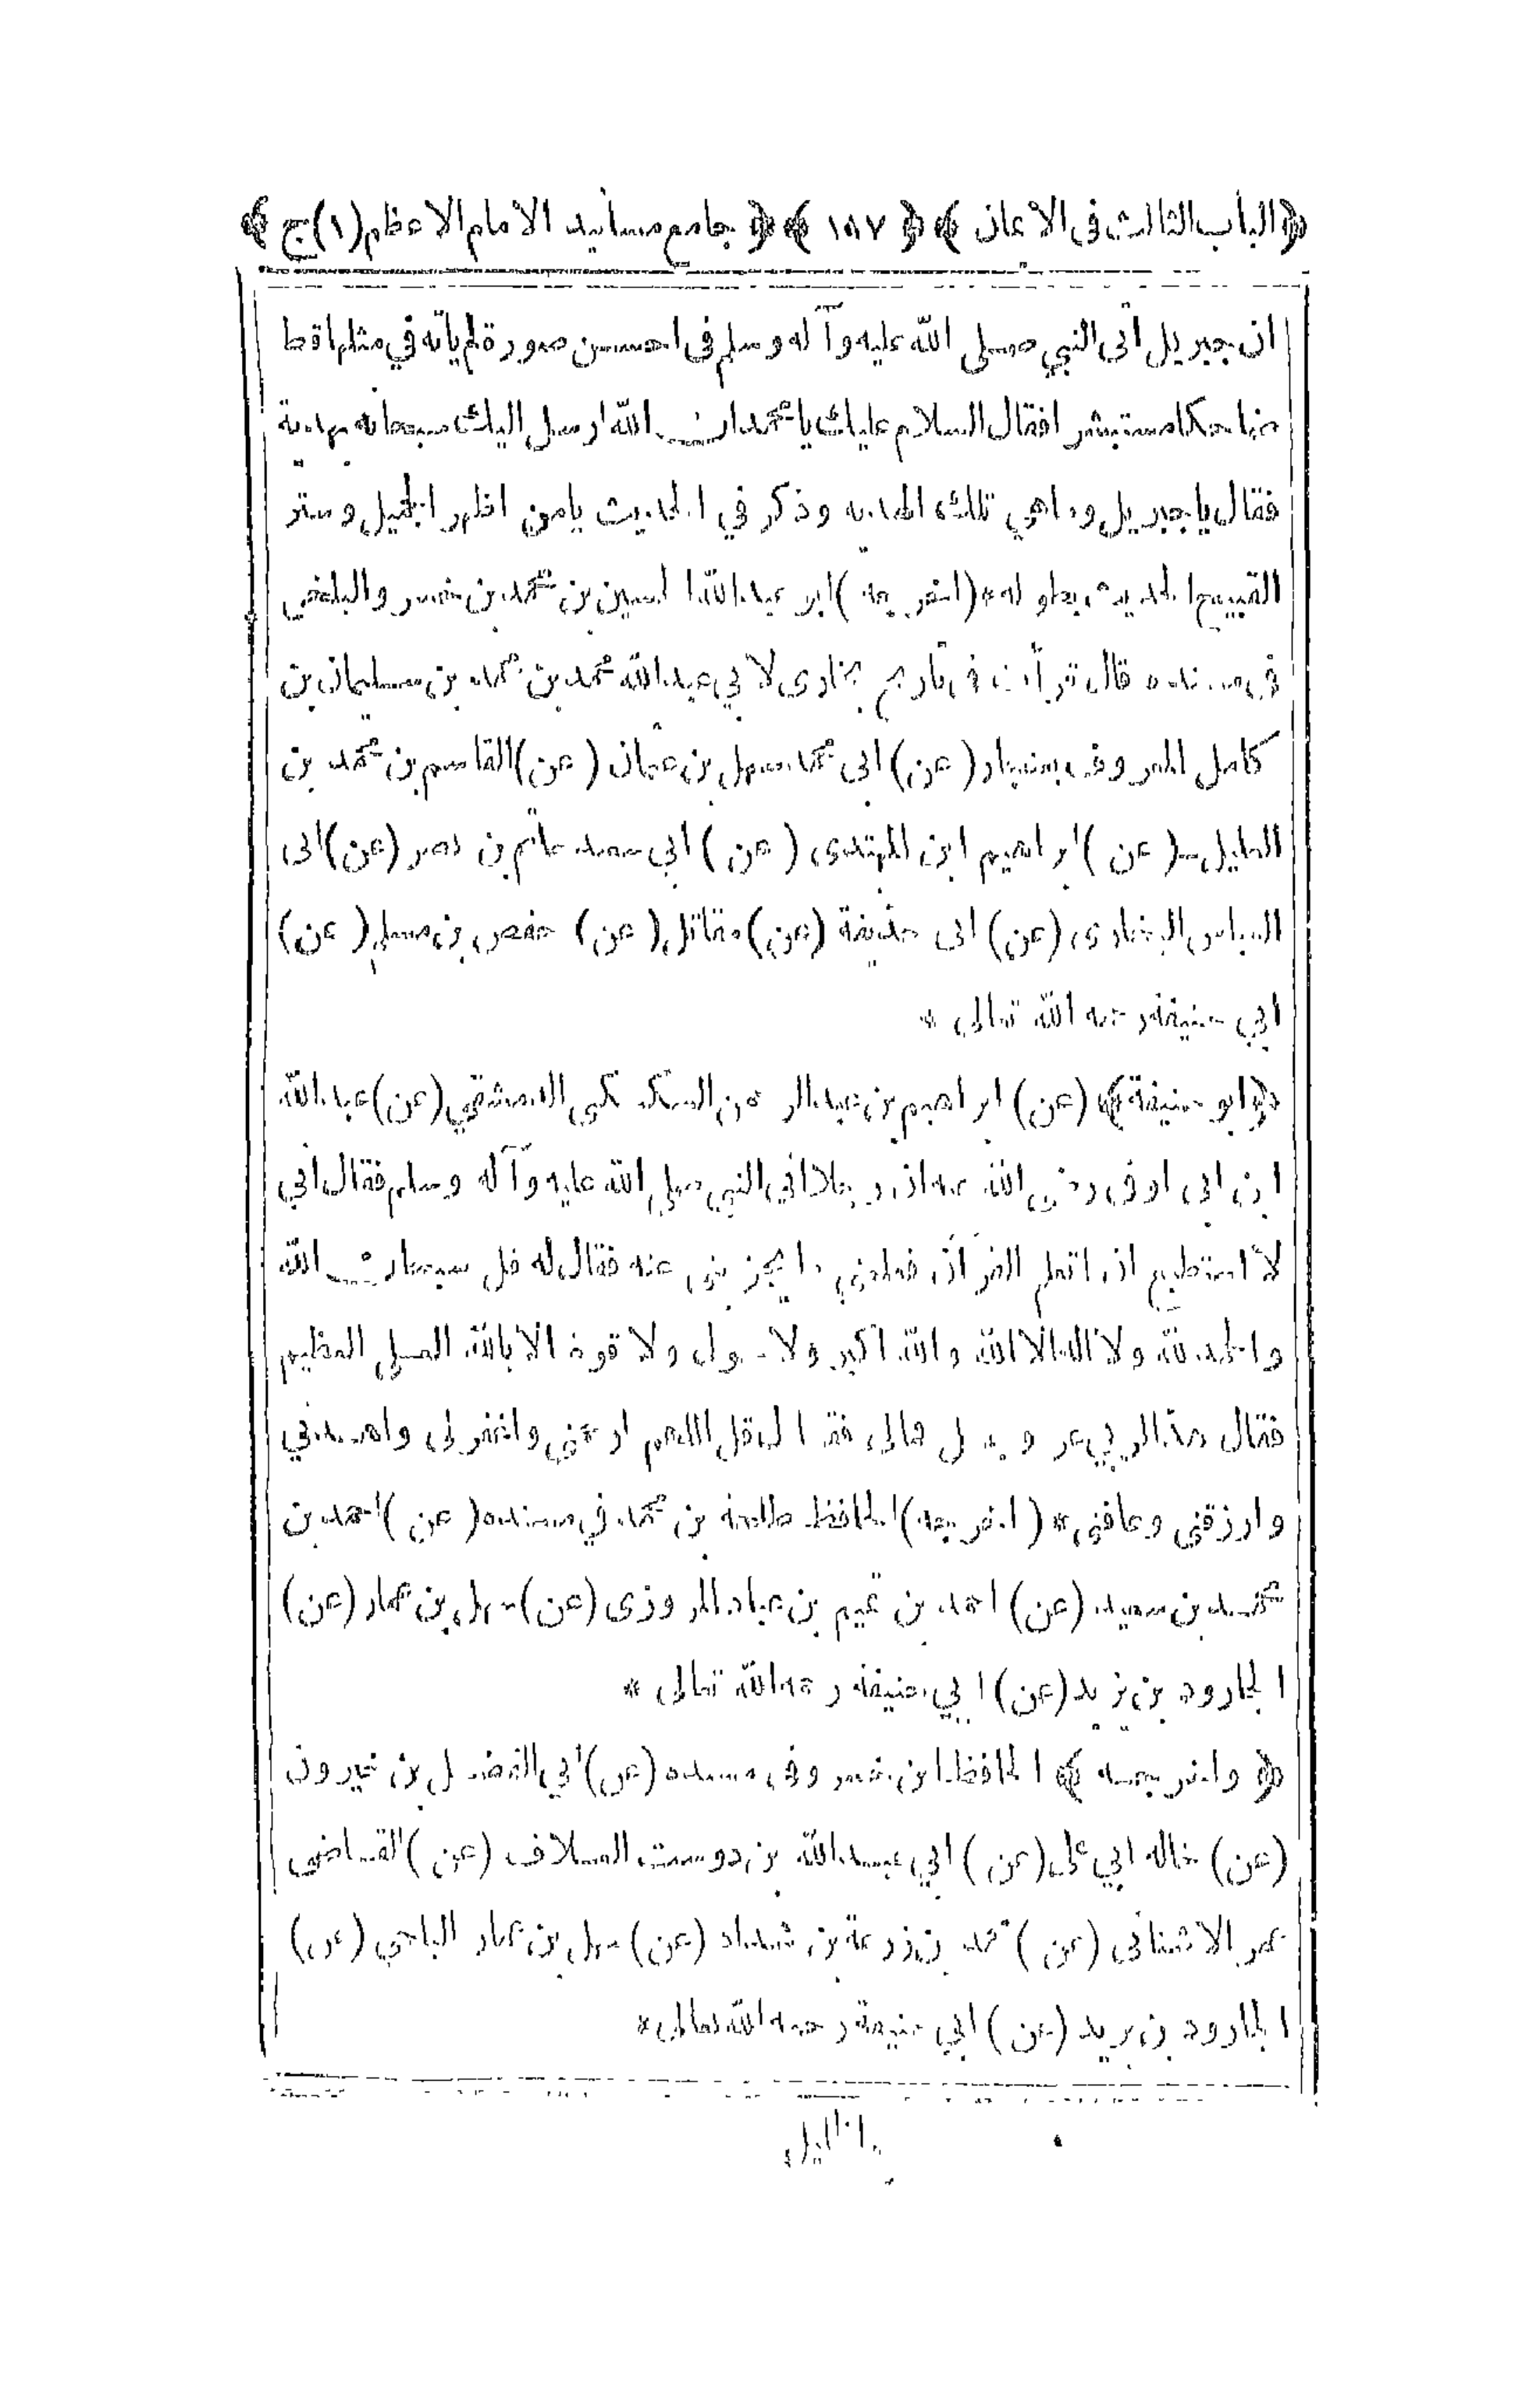 ﴿الباب الثالث فى الايمان﴾ ﴿١٥٧﴾ ﴿جامع مسانيد الامام الاعظم(١)ج﴾
ان جبريل أتى النبي صلى الله عليه وآله وسلم فى احسن صورة لم يأته في مثلها قط
ضاحكا مستبشرا فقال السلام عليك يا محمد ان الله ارسل اليك سبحانه بهدية
فقال يا جبريل وماهي تلك الهدية وذكر في الحديث يامن اظهر الجميل وستر
القبيح الحديث بطوله * (اخرجه) ابو عبد الله الحسين بن محمد بن خسرو البلخى
فى مسنده قال قرأت فى تاريخ بخارى لابي عبد الله محمد بن محمد بن سليمان بن
كامل المعروف بغنجار (عن) ابى محمد سهل بن عثمان (عن) القاسم بن محمد بن
(عن) ابراهيم ابن المهتدى (عن) ابي سعيد حاتم بن نصر (عن) ابى
العباس البخارى (عن) ابى حذيفة (عن) مقاتل (عن) حفص بن مسلم (عن)
ابي حنيفة رحمه الله تعالى *
﴿ابو حنيفة﴾ (عن) ابراهيم بن عبد الرحمن السكسكى الدمشقي (عن) عبد الله
ابن ابى اوفى رضى الله عنه ان رجلا اتى النبي صلى الله عليه وآله وسلم فقال انى
لا استطيع ان اتعلم القرآن فعلمنى ما يجزينى عنه فقال له قل سبحان الله
والحمد لله ولا اله الا الله والله اكبر ولا حول ولا قوة الا بالله العلى العظيم
فقال هذا لربي عز وجل فمالى فقال قل اللهم ارحمنى واغفر لى واهدني
وارزقني وعافنى * (اخرجه) الحافظ طلحة بن محمد في مسنده (عن) احمد بن
محمد بن سعيد (عن) احمد بن تميم بن عباد المروزى (عن) سهل بن عمار (عن)
الجارود بن يزيد (عن) ابي حنيفة رحمه الله تعالى *
﴿واخرجه﴾ الحافظ ابن خسرو فى مسنده (عن) ابي الفضل بن خيرون
(عن) خاله ابي على (عن) ابي عبد الله بن دوست العلاف (عن) القاضى
عمر الاشنانى (عن) محمد بن زرعة بن شداد (عن) سهل بن عمار (عن)
الجارود بن يزيد (عن) ابي حنيفة رحمه الله تعالى *